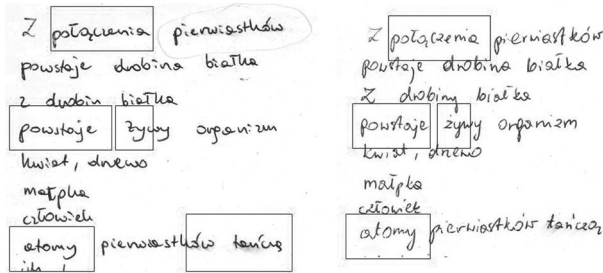 Z połączenia pierwiastków
powstaje drobina białka
z drobin białka
powstaje żywy organizm
kwiat, drzewo
małpka
człowiek
atomy pierwiastków tańczą
Z połączenia pierwiastków
powstaje drobina białka
Z drobiny białka
powstaje żywy organizm
kwiat, drzewo
małpka
człowiek
atomy pierwiastków tańczą